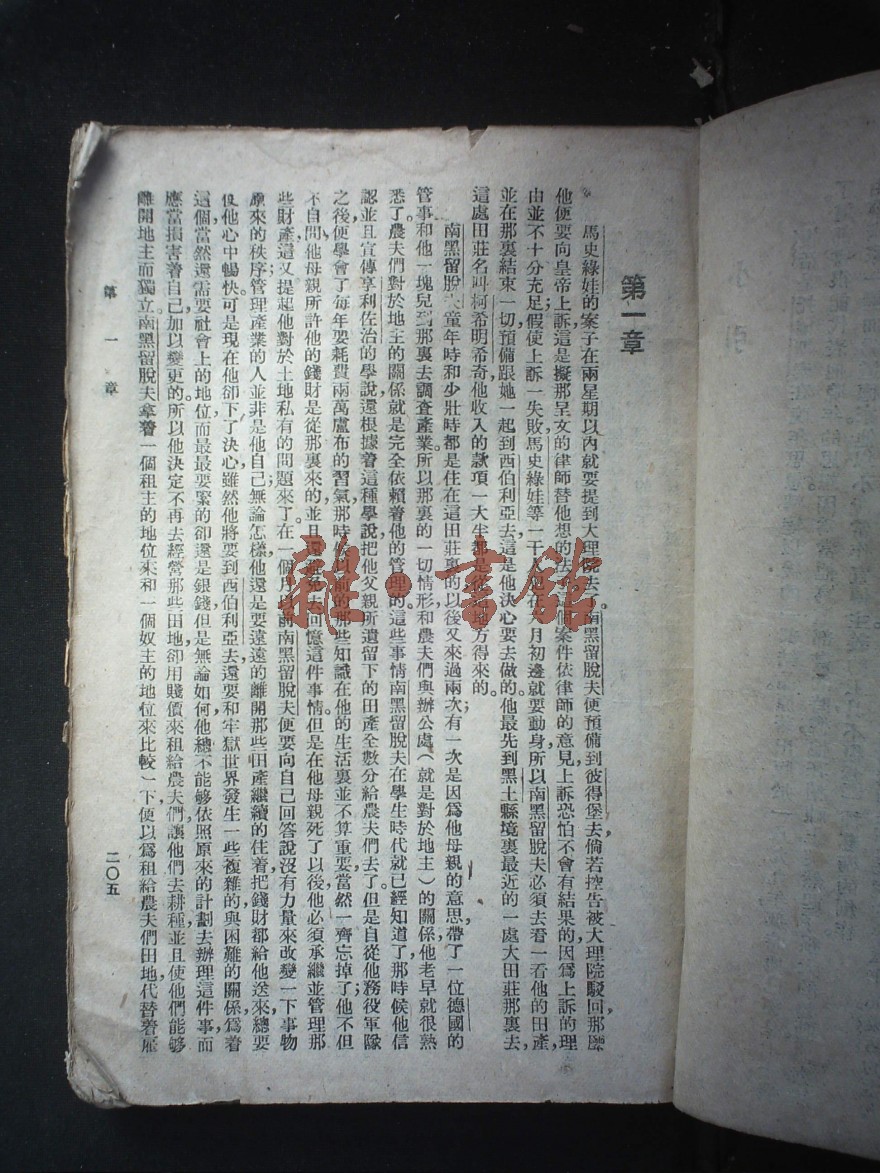 第一章
馬史綠娃的案子在兩星期以內就要提到大理院去了南黑留脫夫便預備到彼得堡去，倘若控告被大理院駁回那麼，
他便要向皇帝上訴這是擬那呈文的律師替他想的法子這個案件依律師的意見上訴恐怕不會有結果的因爲上訴的理
由並不十分充足；假使上訴一失敗馬史綠娃等一干人犯在六月初邊就要動身，所以南黑留脫夫必須去看一看他的田產，
並在那裏結束一切預備跟她一起到西伯利亞去這是他決心要去做的。他最先到黑土縣境裏最近的一處大田莊那裏去，
這處田莊名叫柯希明希奇他收入的款項一大半都是從這地方得來的。
南黑留脫夫童年時和少壯時都是住在這田莊裏的以後又來過兩次；有一次是因爲他母親的意思，帶了一位德國的
管事和他一塊兒到那裏去調查產業。所以那裏的一切情形和農夫們與辦公處（就是對於地主）的關係他老早就很熟
悉了農夫們對於地主的關係就是完全依賴着他的管理的。這些事情南黑留脫夫在學生時代就已經知道了，那時候他信
認並且宣傳享利佐治的學說還根據着這種學說把他父親所遺留下的田產全數分給農夫們去了。但是自從他務役軍隊
之後便學會了每年要耗費兩萬盧布的習氣，那時候以前的那些知識在他的生活裏並不算重要，當然一齊忘掉了；他不但
不自問他母親所許他的錢財是從那裏來的，並且還避免去回憶這件事情。但是在他母親死了以後他必須承繼並管理那
些財產，這又提起他對於土地私有的問題來了。在一個月以前南黑留脫夫便要向自己回答說沒有力量來改變一下事物
原來的秩序；管理產業的人並非是他自己無論怎樣，他還是要遠遠的離開那些田產繼續的住着把錢財都給他送來，總要
使他心中暢快。可是現在他卻下了決心，雖然他將要到西伯利亞去還要和牢獄世界發生一些複雜的與困難的關係，爲着
這個當然還需要社會上的地位，而最最要緊的卻還是銀錢，但是無論如何他總不能夠依照原來的計劃去辦理這件事，而
應當損害着自己加以變更的。所以他決定不再去經營那些田地，卻用賤價來租給農夫們，讓他們去耕種，並且使他們能夠
離開地主而獨立。南黑留脫夫拿着一個租主的地位來和一個奴主的地位來比較一下，便以爲租給農夫們田地代替着雇
第一章
二〇五
雜·書館